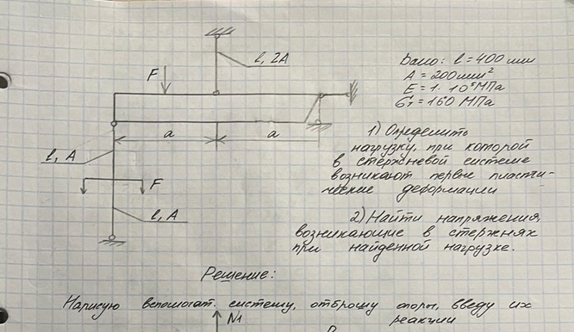 l, 2A
F
Дано: l = 400 мм
A = 200 мм²
E = 1·10⁵ МПа
σт = 160 МПа
a
a
l, A
F
l, A
1) Определить
нагрузку, при которой
в стержневой системе
возникают первые пласти-
ческие деформации
2) Найти напряжения,
возникающие в стержнях
при найденной нагрузке.
Решение:
Нарисую вспомогат. систему, отброшу опоры, введу их
реакции
N1